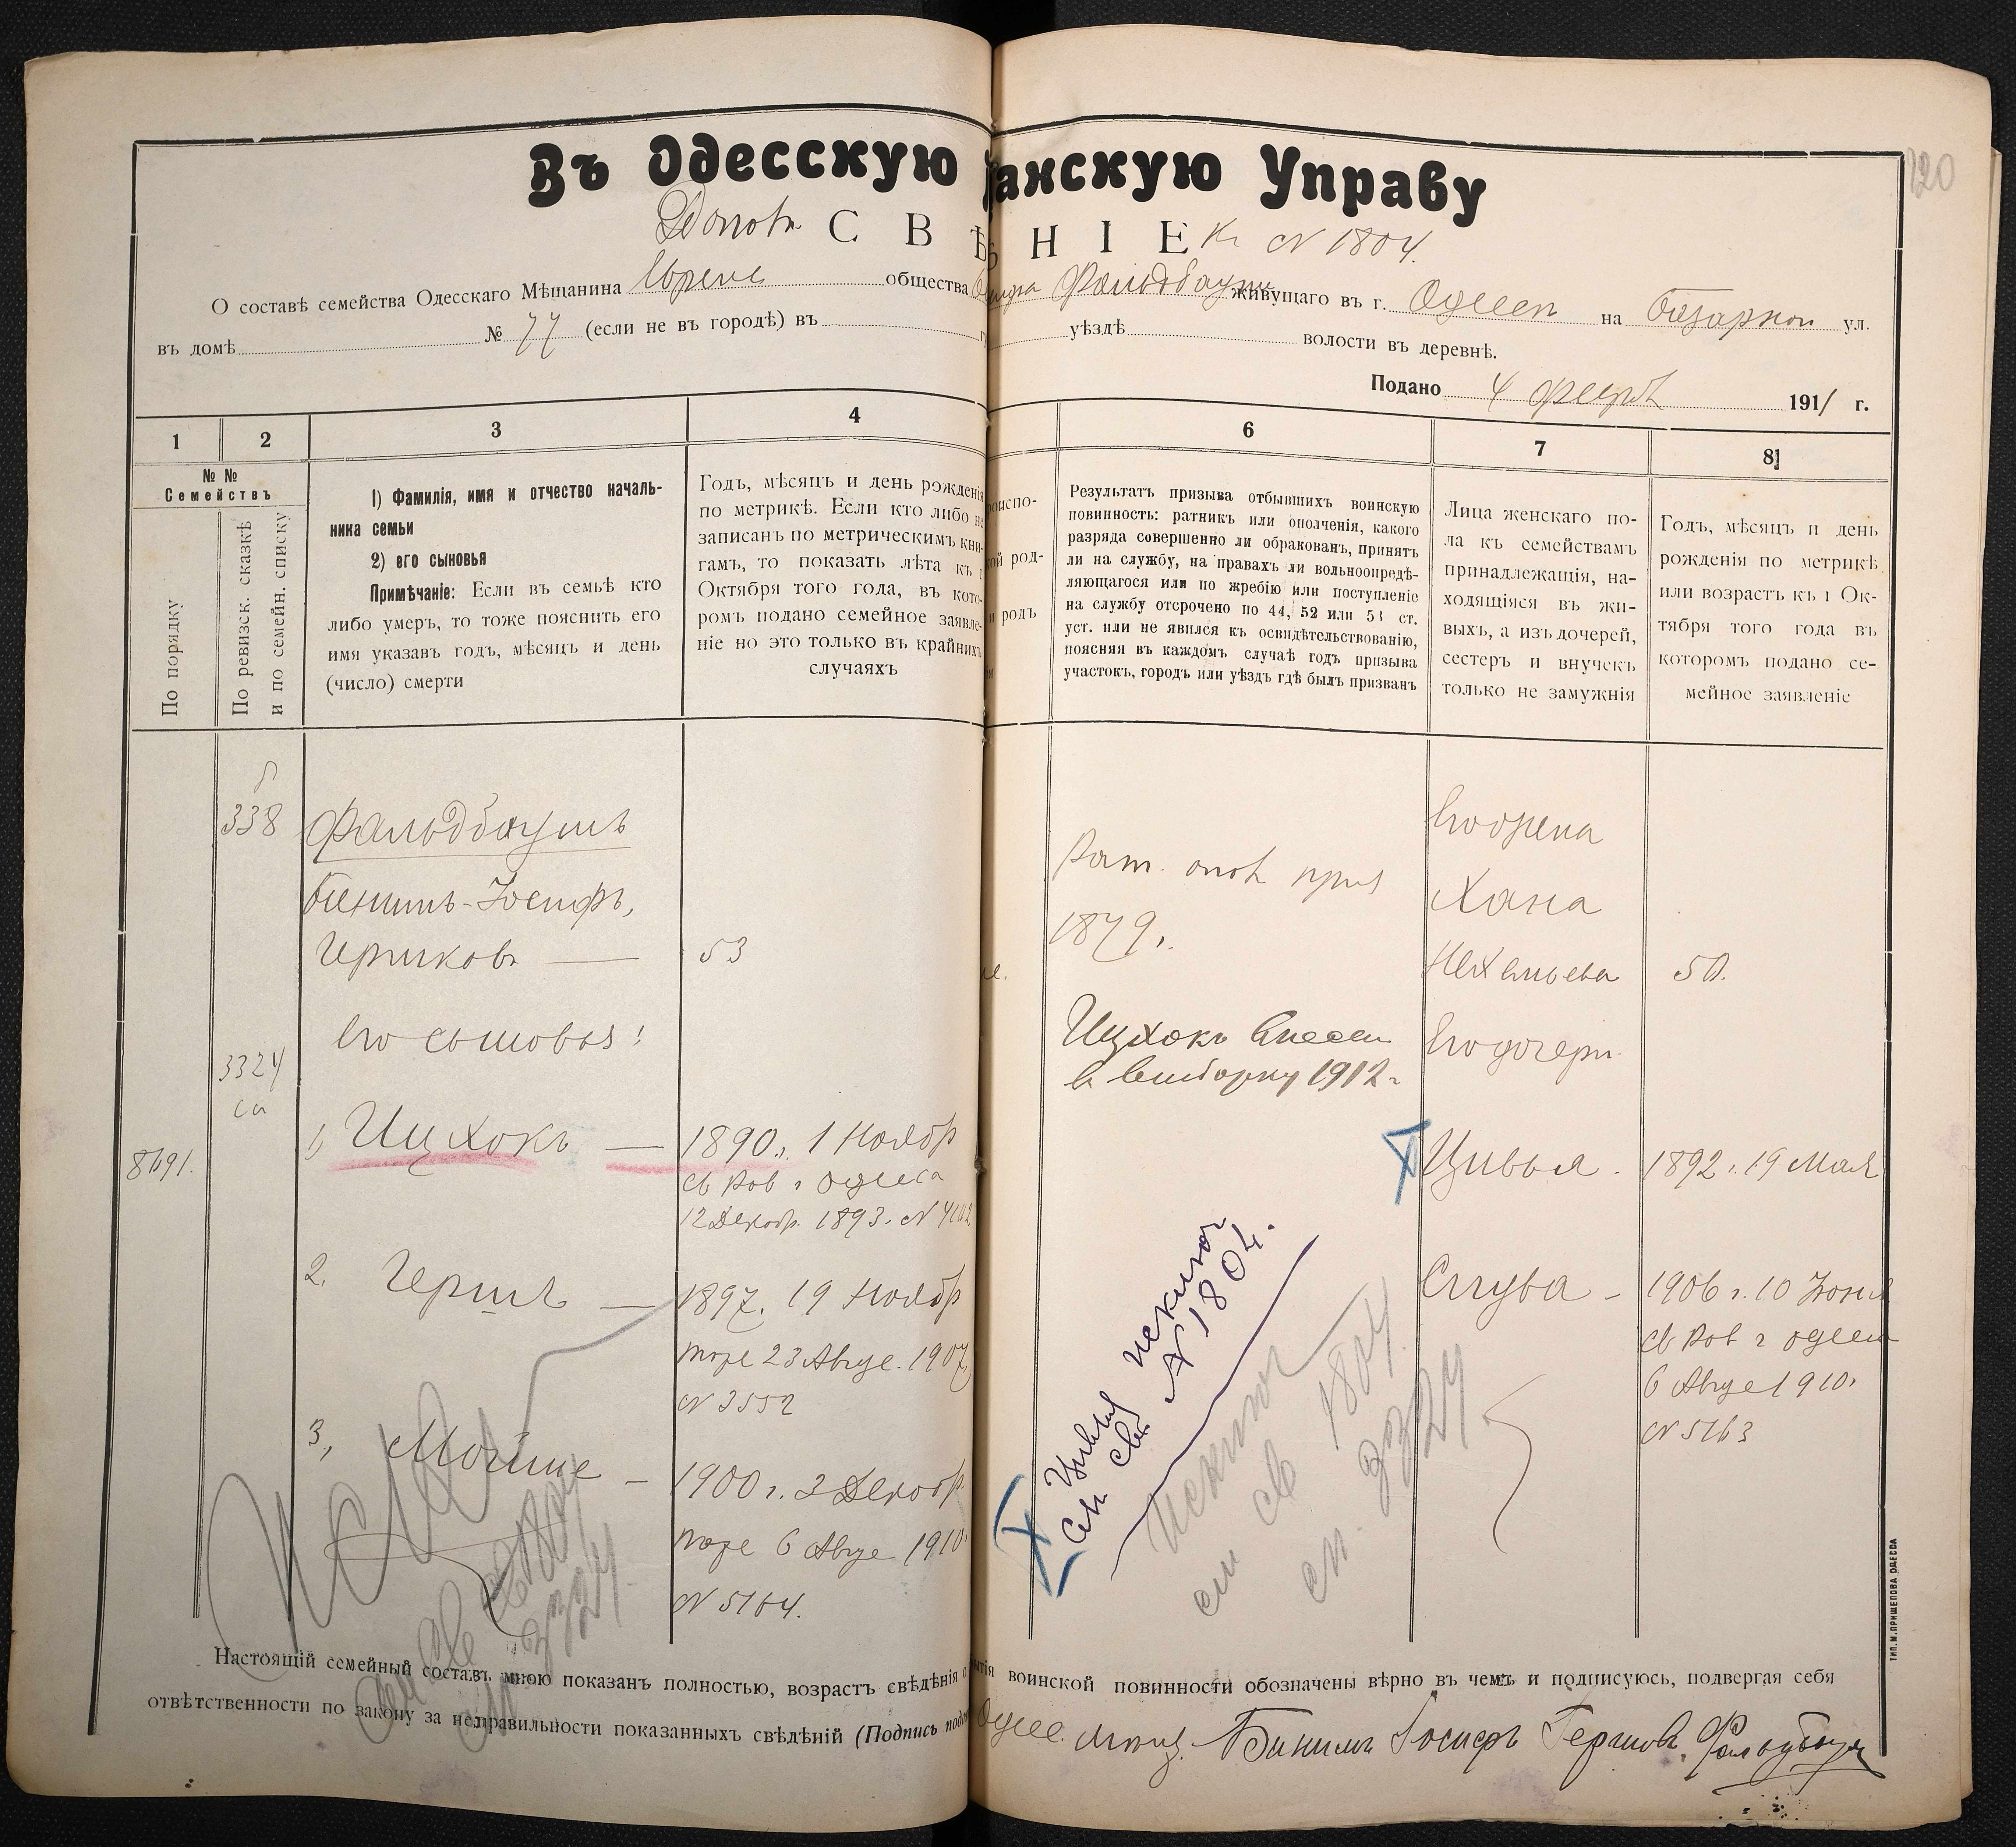 120
Въ Одесскую анскую Управу
С В Ѣ Н І Е
къ № 1804.
О составѣ семейства Одесскаго Мѣщанина общества Фальдбаумъ живущаго въ г. Одессѣ на Базарной ул.
въ домѣ № 77 (если не въ городѣ) въ уѣздѣ волости въ деревнѣ.
Подано 4 191/ г.
1 2 3 4 6 7 8
№ №
Семействъ
По порядку
По ревизск. сказкѣ
и по семейн. списку
1) Фамилія, имя и отчество началь-
ника семьи
2) его сыновья
Примѣчаніе: Если въ семьѣ кто
либо умеръ, то тоже пояснить его
имя указавъ годъ, мѣсяцъ и день
(число) смерти
Годъ, мѣсяцъ и день рожденія
по метрикѣ. Если кто либо не
записанъ по метрическимъ кни-
гамъ, то показать лѣта къ 1
Октября того года, въ кото-
ромъ подано семейное заявле-
ніе но это только въ крайнихъ
случаяхъ
оиспо-
ой род-
и родъ
Результатъ призыва отбывшихъ воинскую
повинность: ратникъ или ополченія, какого
разряда совершенно ли обракованъ, принятъ
ли на службу, на правахъ ли вольноопредѣ-
ляющагося или по жребію или поступленіе
на службу отсрочено по 44, 52 или 53 ст.
уст. или не явился къ освидѣтельствованію,
поясняя въ каждомъ случаѣ годъ призыва
участокъ, городъ или уѣздъ гдѣ былъ призванъ
Лица женскаго по-
ла къ семействамъ
принадлежащія, на-
ходящіяся въ жи-
выхъ, а изъ дочерей,
сестеръ и внучекъ
только не замужнія
Годъ, мѣсяцъ и день
рожденія по метрикѣ
или возрастъ къ 1 Ок-
тября того года въ
которомъ подано се-
мейное заявленіе
338
Фальдбаумъ
Бенимъ-Іосифъ,
Гершковъ — 53
Его сыновья:
3324
си
8691.
1) Ицхокъ — 1890 г. 1 Ноябр
св Рав г Одесса
12 Декабр. 1893. №
2. Гершъ — 1897. 19 Ноябр
тоже 23 Авгус. 1907
№ 3552
3, Мойше — 1900 г. 3 Декабр
тоже 6 Авгус 1910
№ 5164.
Рат. опол приз
1879 г.
Ицхокъ внесен
в выборку 1912 г
Его жена
Хана
50.
Его дочери
Цивья. 1892 г. 19 Мая
Слува - 1906 г. 10 Іюня
св Рав г Одессы
6 Авгус 1910.
№ 5163
Цивья исключ
См. св № 1804.
Исключ
см св 1804.
сп. 3324
см св 1804
сп. 3324
Настоящій семейный составъ мною показанъ полностью, возрастъ свѣдѣнія о тія воинской повинности обозначены вѣрно въ чемъ и подписуюсь, подвергая себя
отвѣтственности по закону за неправильности показанныхъ свѣдѣній (Подпись
Одес. мѣщ. Бинимъ Іосифъ Гершковъ Фальдбаумъ
ТИП. М. ПРИЩЕПОВА ОДЕССА